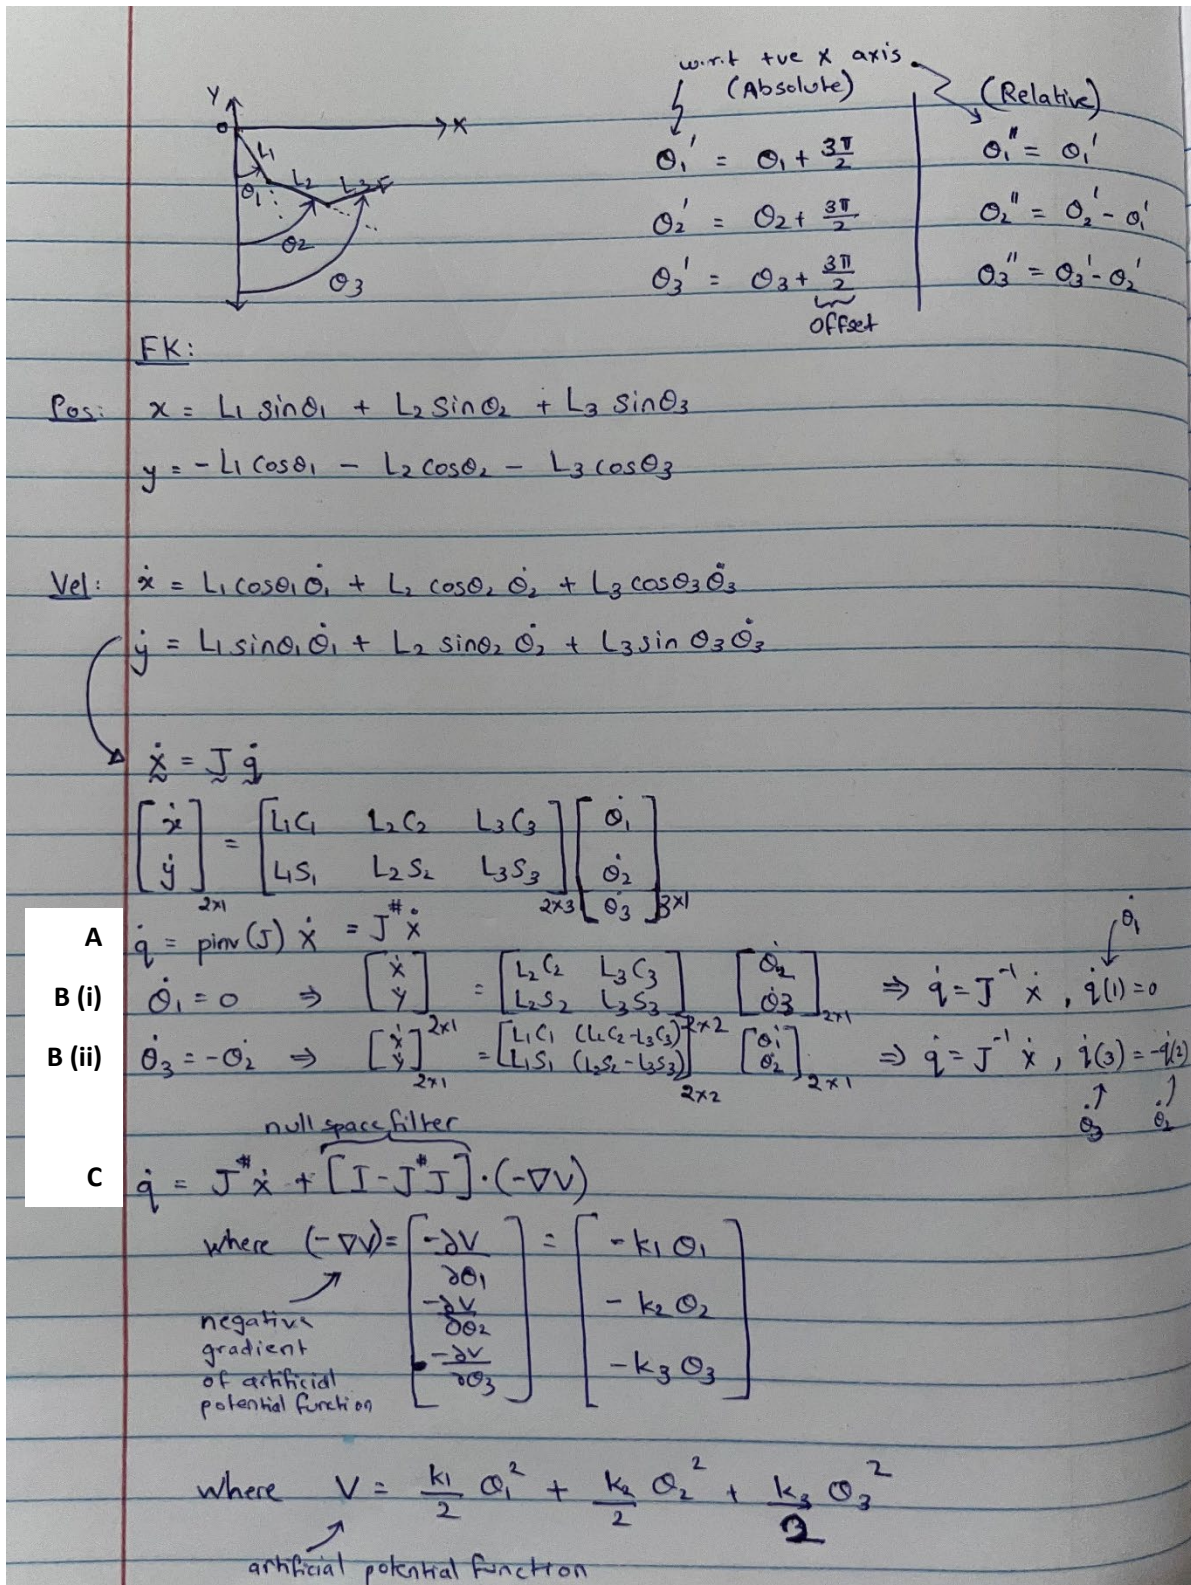 w.r.t +ve x axis
(Absolute)
(Relative)
Y
O
X
L1
L2
L3
F
θ1
θ2
θ3
θ1' = θ1 + 3π/2
θ1'' = θ1'
θ2' = θ2 + 3π/2
θ2'' = θ2' - θ1'
θ3' = θ3 + 3π/2
θ3'' = θ3' - θ2'
offset
FK:
Pos: x = L1 sinθ1 + L2 sinθ2 + L3 sinθ3
y = - L1 cosθ1 - L2 cosθ2 - L3 cosθ3
Vel: ẋ = L1 cosθ1 θ̇1 + L2 cosθ2 θ̇2 + L3 cosθ3 θ̇3
ẏ = L1 sinθ1 θ̇1 + L2 sinθ2 θ̇2 + L3 sin θ3 θ̇3
Ẋ = J q̇
[ẋ ẏ] 2x1 = [L1C1 L2C2 L3C3 L1S1 L2S2 L3S3] 2x3 [θ̇1 θ̇2 θ̇3] 3x1
A q̇ = pinv(J) Ẋ = J# Ẋ
θ̇1
B (i) θ̇1 = 0 ⇒ [ẋ ẏ] 2x1 = [L2C2 L3C3 L2S2 L3S3] 2x2 [θ̇2 θ̇3] 2x1 ⇒ q̇ = J⁻¹ ẋ , q̇(1) = 0
B (ii) θ̇3 = -θ̇2 ⇒ [ẋ ẏ] 2x1 = [L1C1 (L2C2-L3C3) L1S1 (L2S2-L3S3)] 2x2 [θ̇1 θ̇2] 2x1 ⇒ q̇ = J⁻¹ ẋ , q̇(3) = -q̇(2)
θ̇3 θ̇2
null space filter
C q̇ = J# ẋ + [I - J# J] · (-∇V)
where (-∇V) = [-∂V/∂θ1 -∂V/∂θ2 -∂V/∂θ3] = [-k1 θ1 -k2 θ2 -k3 θ3]
negative
gradient
of artificial
potential function
where V = k1/2 θ1² + k2/2 θ2² + k3/2 θ3²
artificial potential function